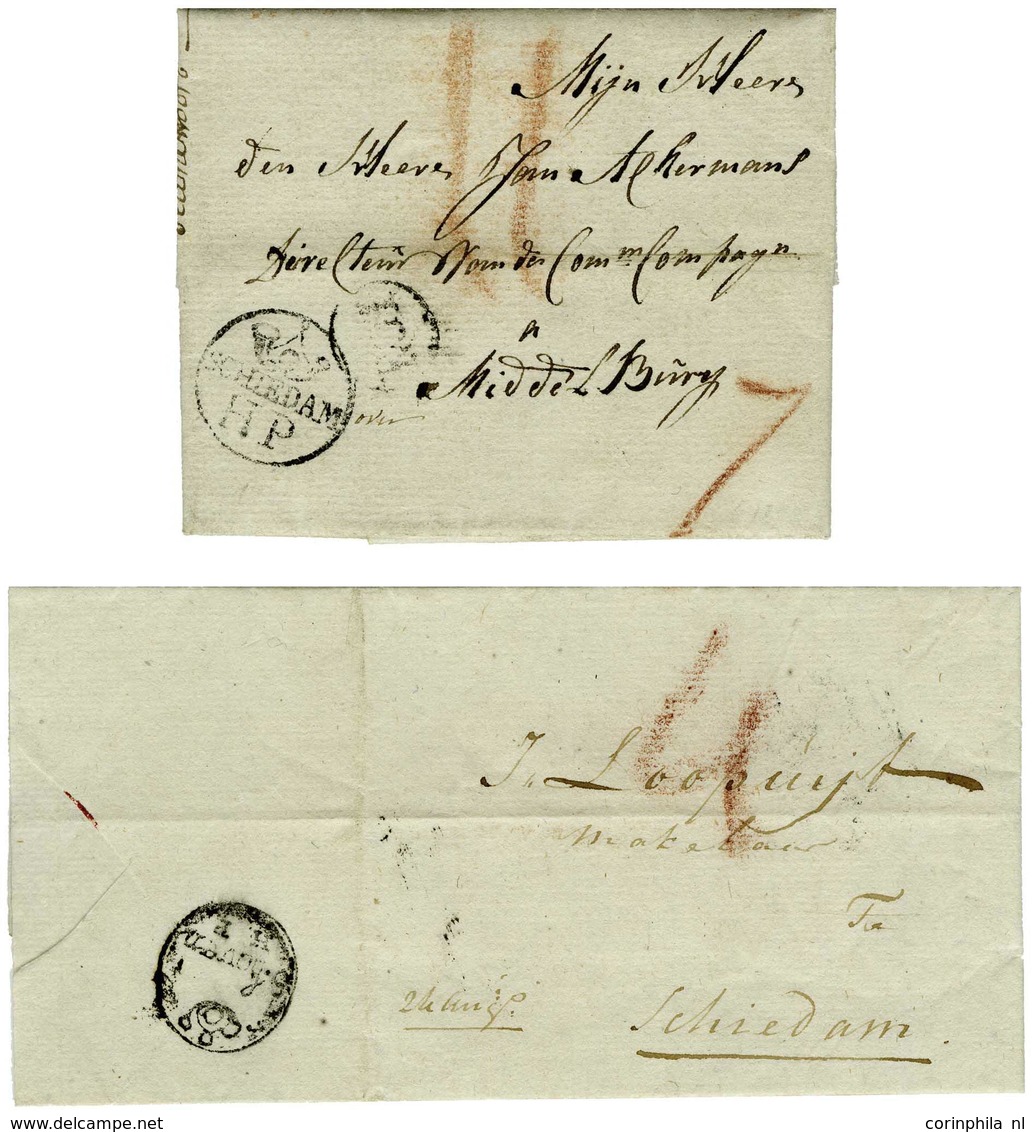 11
Mijn Heere
den Heere Jan Ackermans
Directeur Van de Comm Compagn
a
Middel Burg
SCHIEDAM
HP
over
7
4
Jn Loopuijt
Makelaar
Te
Schiedam
corinphila nl